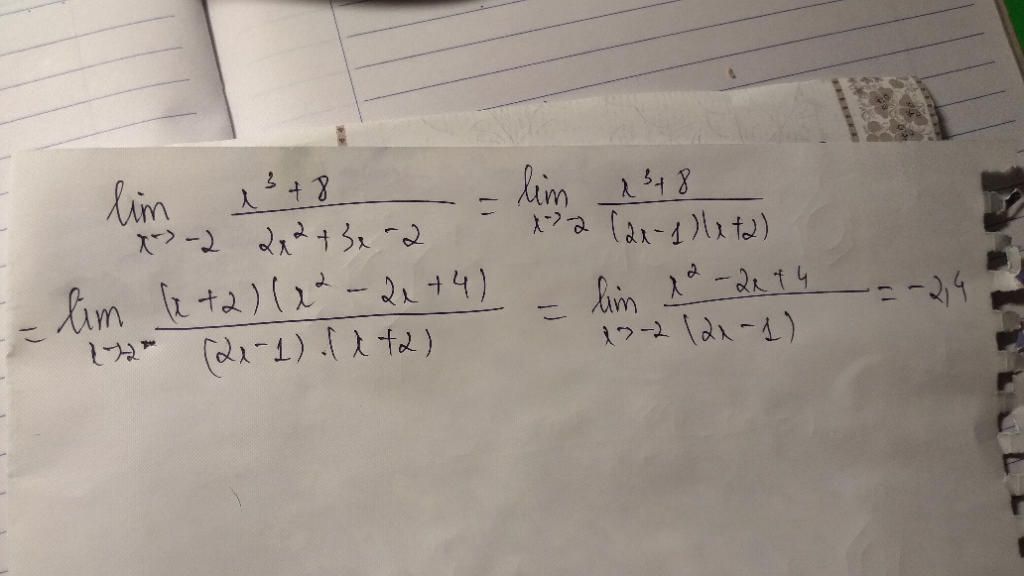 lim x→-2 (x³+8)/(2x²+3x-2) = lim x→-2 (x³+8)/((2x-1)(x+2))
= lim x→2- ((x+2)(x²-2x+4))/((2x-1).(x+2)) = lim x→-2 (x²-2x+4)/(2x-1) = -2,4